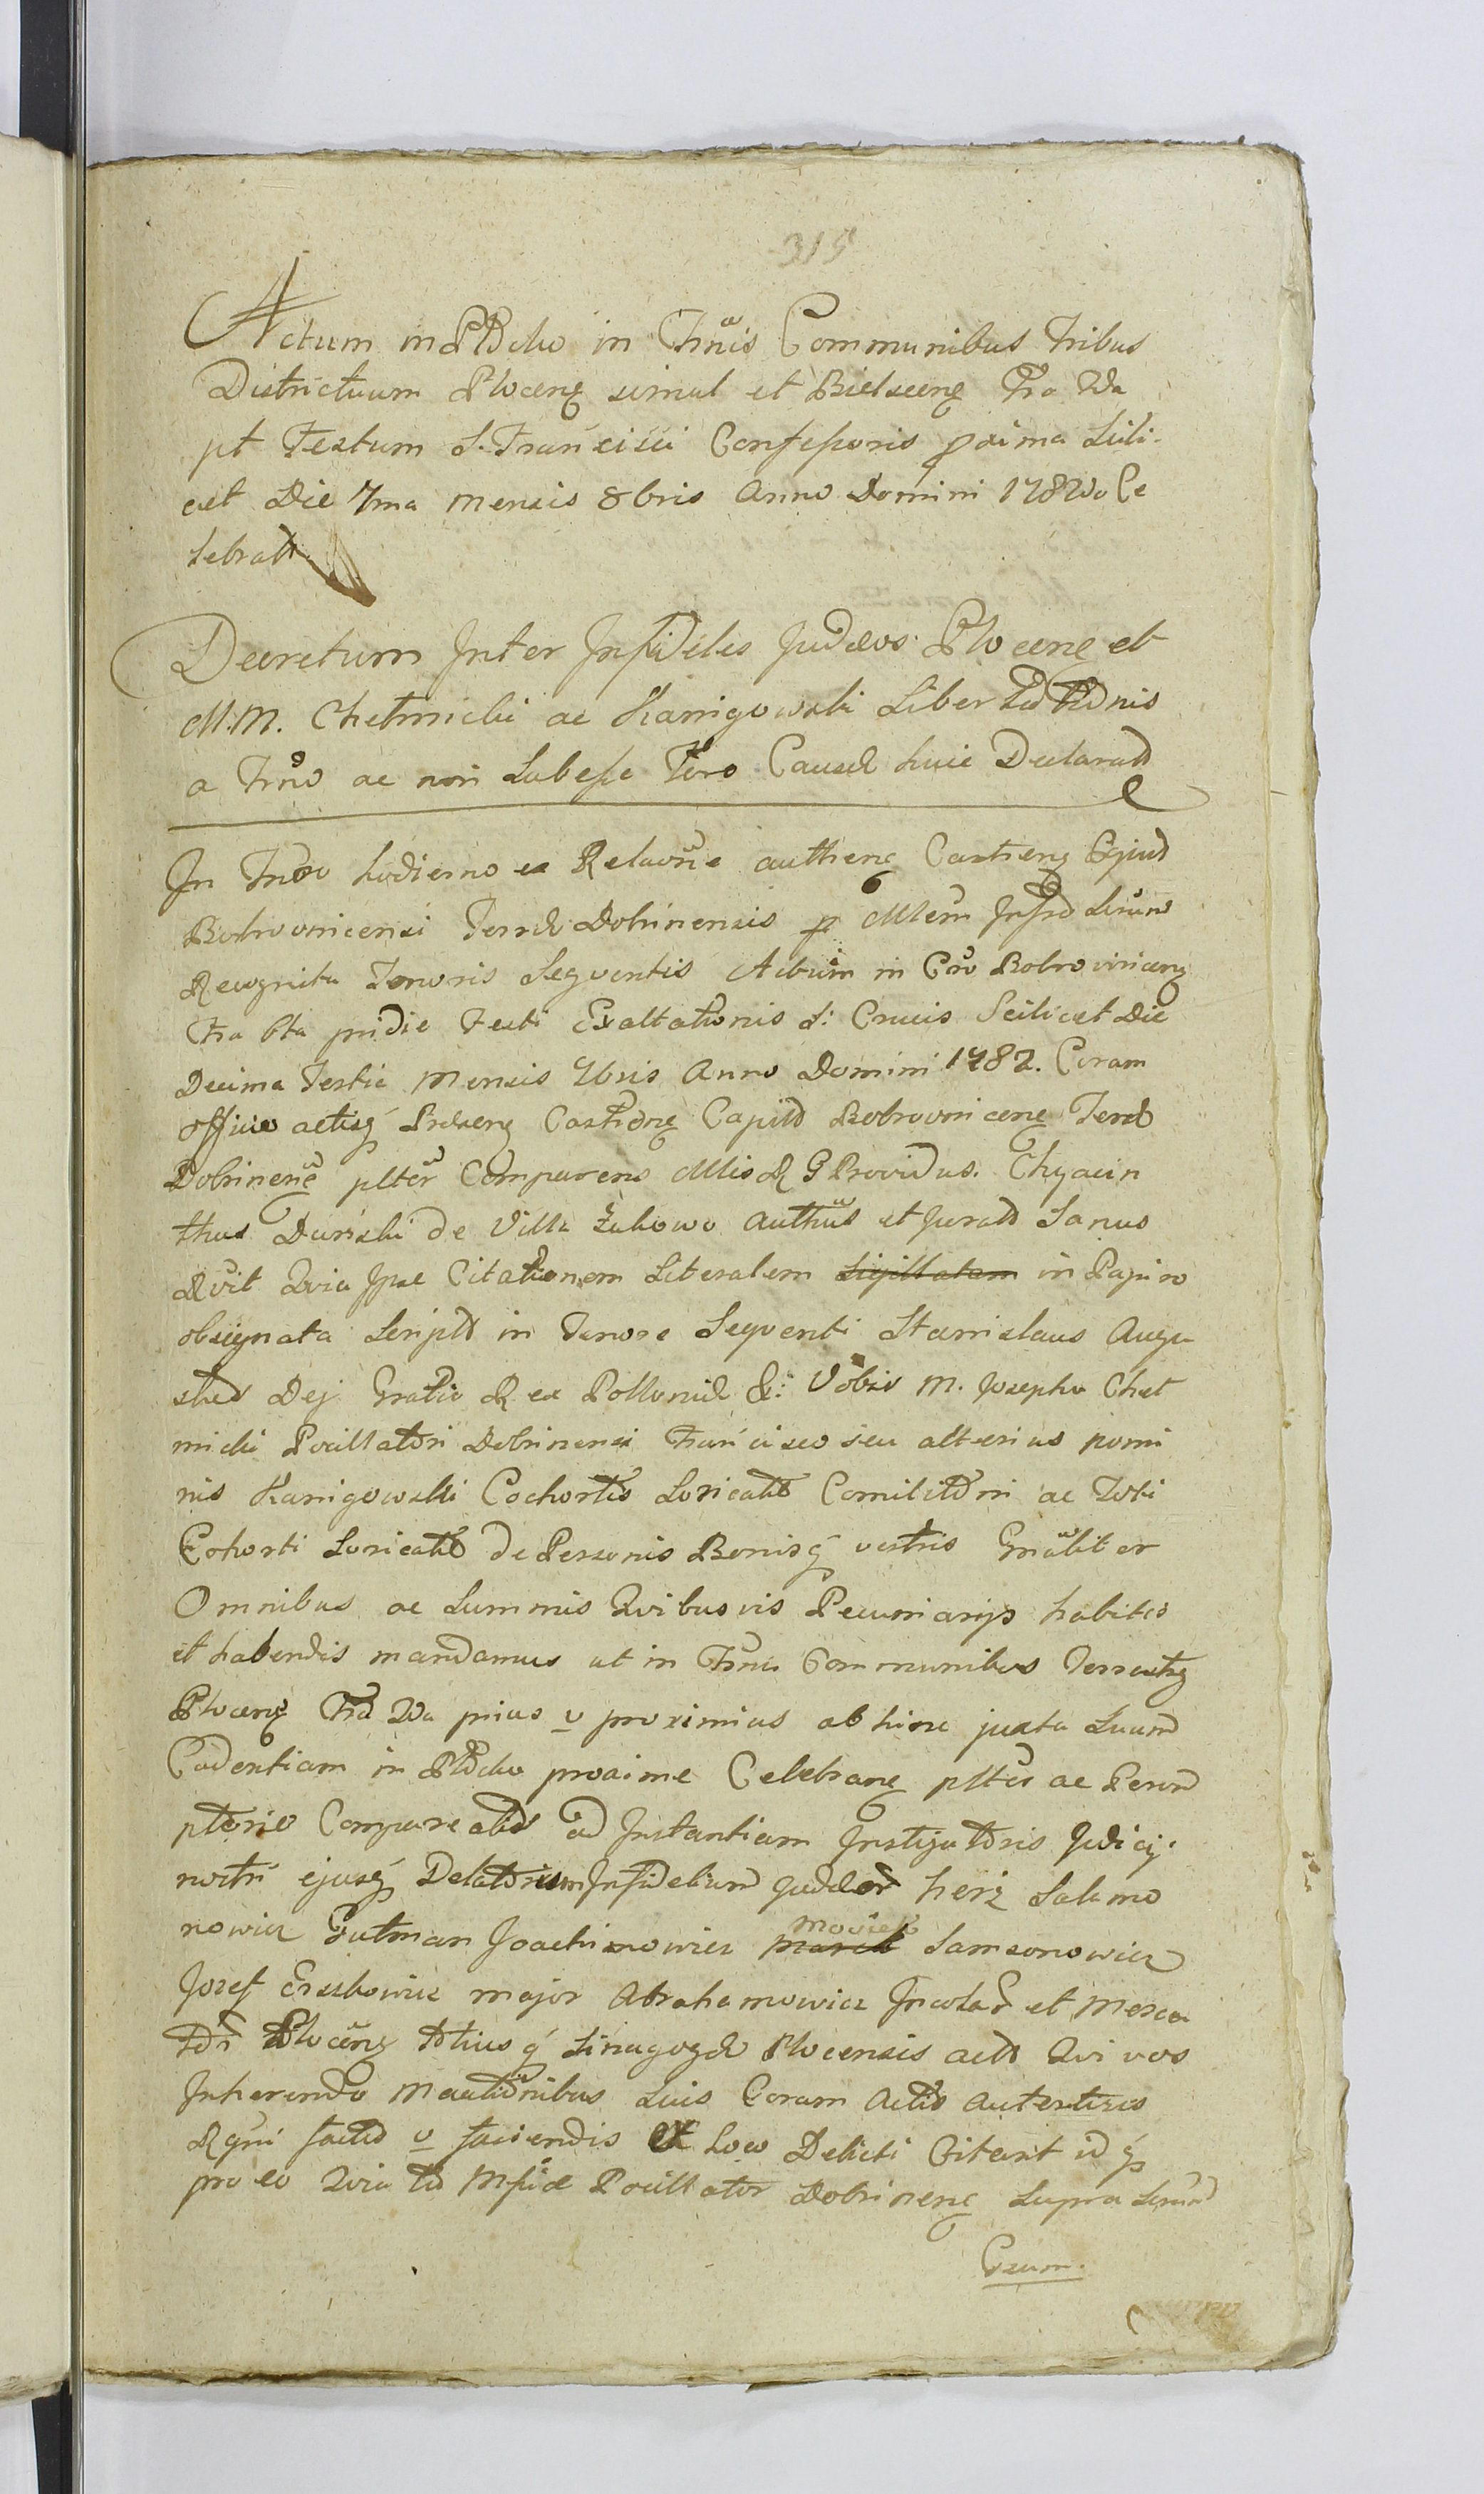 319
Actum in Płocko in Trmis Communibus tribus
Districtuum Plocen simul et Bielscen Fra 2da
pt Festum S. Francisci Confessoris pxima Scili-
cet Die 7ma Mensis 8bris Anno Domini 1782do Ce
lebratt
Decretum Inter Infideles Judæos Plocen et
M.M. Chełmicki ac Kanigowski Liber
a Trno ac non Subesse Foro Causæ huic Declaratt
In Trno hodierno ex Relaone authen Castren
Bobrovnicensi Terræ Dobrinensis p Mlem Infra
Recognita Tenoris Seqventis Actum in Cro Bobrovnicen
Fra 6ta pridie Festi Exaltationis S: Crucis Scilicet Die
Decima Tertia Mensis 7bris Anno Domini 1782. Coram
Officio actisq Castren Capit Bobrovnicen Terræ
Dobrinen plter Comparens Mlis R G Providus Chyacin
thus Duriski de Villa Żukowo Authus et Juratt Sanus
Rvit Qvia Ipse Citationem Literalem Sigillatam in Papiro
obsignata Script in Tenore Seqventi Stanislaus Augu
stus Dej Gratia Rex Polloniæ &: Vobis M. Josepho Cheł
micki Pocillatori Dobrinensi Francisco seu alterius nomi
nis Kanigowski Cochortis Loricatæ Comilitoni ac Toti
Cohorti Loricatæ de Personis Bonisq vestris Gnaliter
Omnibus ac Summis Qvibusvis Pecuniarijs habitis
et habendis mandamus ut in Trnis Communibus Terrestr
Plocen Fra 2da prius v proximius abhinc juxta Suam
Cadentiam in Płocko proxime Celebran plter ac Perem
ptorie Compareatis ad Instantiam Instigatoris Judicij
nostri ejusq Delatorum Infidelium Judæor Herz Salamo
nowicz Gutman Joachimowicz Marek Moszek Samsonowicz
Josef Erszkowicz major Abrahamowicz Incolar et Merca
tor Plocen totiusq Sinagogæ Plocensis actt Qvi vos
Inherendo Manifibus Suis Coram Actis Autenticis
Rgni factis v faciendis Ex Loco Delicti Citant idq
pro eo Qvia Pocillator Dobrinen Supra
Crum.